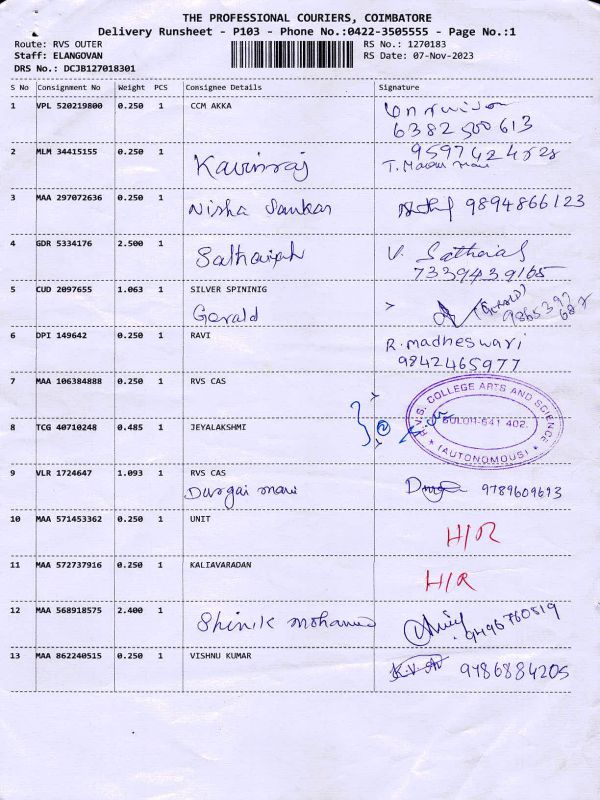 THE PROFESSIONAL COURIERS, COIMBATORE
Delivery Runsheet - P103 - Phone No.:0422-3505555 - Page No.:1
Route: RVS OUTER RS No.: 1270183
Staff: ELANGOVAN RS Date: 07-Nov-2023
DRS No.: DCJB127018301
S No Consignment No Weight PCS Consignee Details Signature
1 VPL 520219800 0.250 1 CCM AKKA
6382500613
2 MLM 34415155 0.250 1 Kavinraj
3 MAA 297072636 0.250 1 Nisha Sankar 9894866123
4 GDR 5334176 2.500 1 V.
7339439165
5 CUD 2097655 1.063 1 SILVER SPININIG
Gerald (GERALD)
6 DPI 149642 0.250 1 RAVI R. madheswari
9842465977
7 MAA 106384888 0.250 1 RVS CAS
R.V.S. COLLEGE ARTS AND SCIENCE
SULUR-641 402.
* (AUTONOMOUS) *
8 TCG 40710248 0.485 1 JEYALAKSHMI
9 VLR 1724647 1.093 1 RVS CAS
Durgai 9789609613
10 MAA 571453362 0.250 1 UNIT H/R
11 MAA 572737916 0.250 1 KALIAVARADAN H/R
12 MAA 568918575 2.400 1 9496760519
13 MAA 862240515 0.250 1 VISHNU KUMAR 9786884205